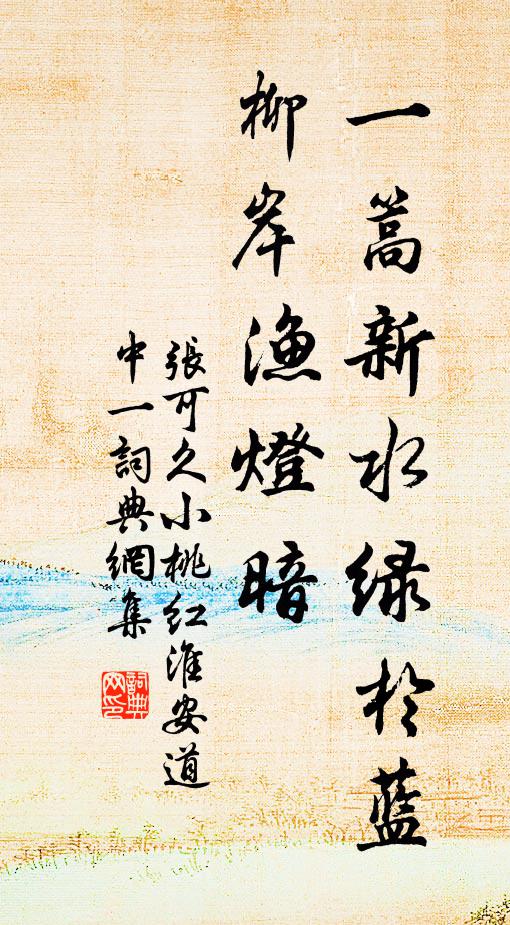 一篙新水绿於蓝
柳岸漁燈暗
張可久小桃红淮安道
中一詞典網集
詞典网印